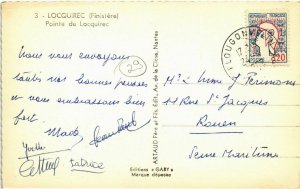 3 - LOCQUIREC (Finistère)
Pointe du Locquirec
Nous vous envoyons
toutes nos bonnes pensées
et vous embrassons bien
fort.
Mado
Yvette
29
PLOUGONVEN
ARTAUD Père et Fils, Édit., Av. de la Close, Nantes
Editions "GABY"
Marque déposée
0,20
Mr & Mme
11 Rue St Jacques
Rouen
Seine Maritime